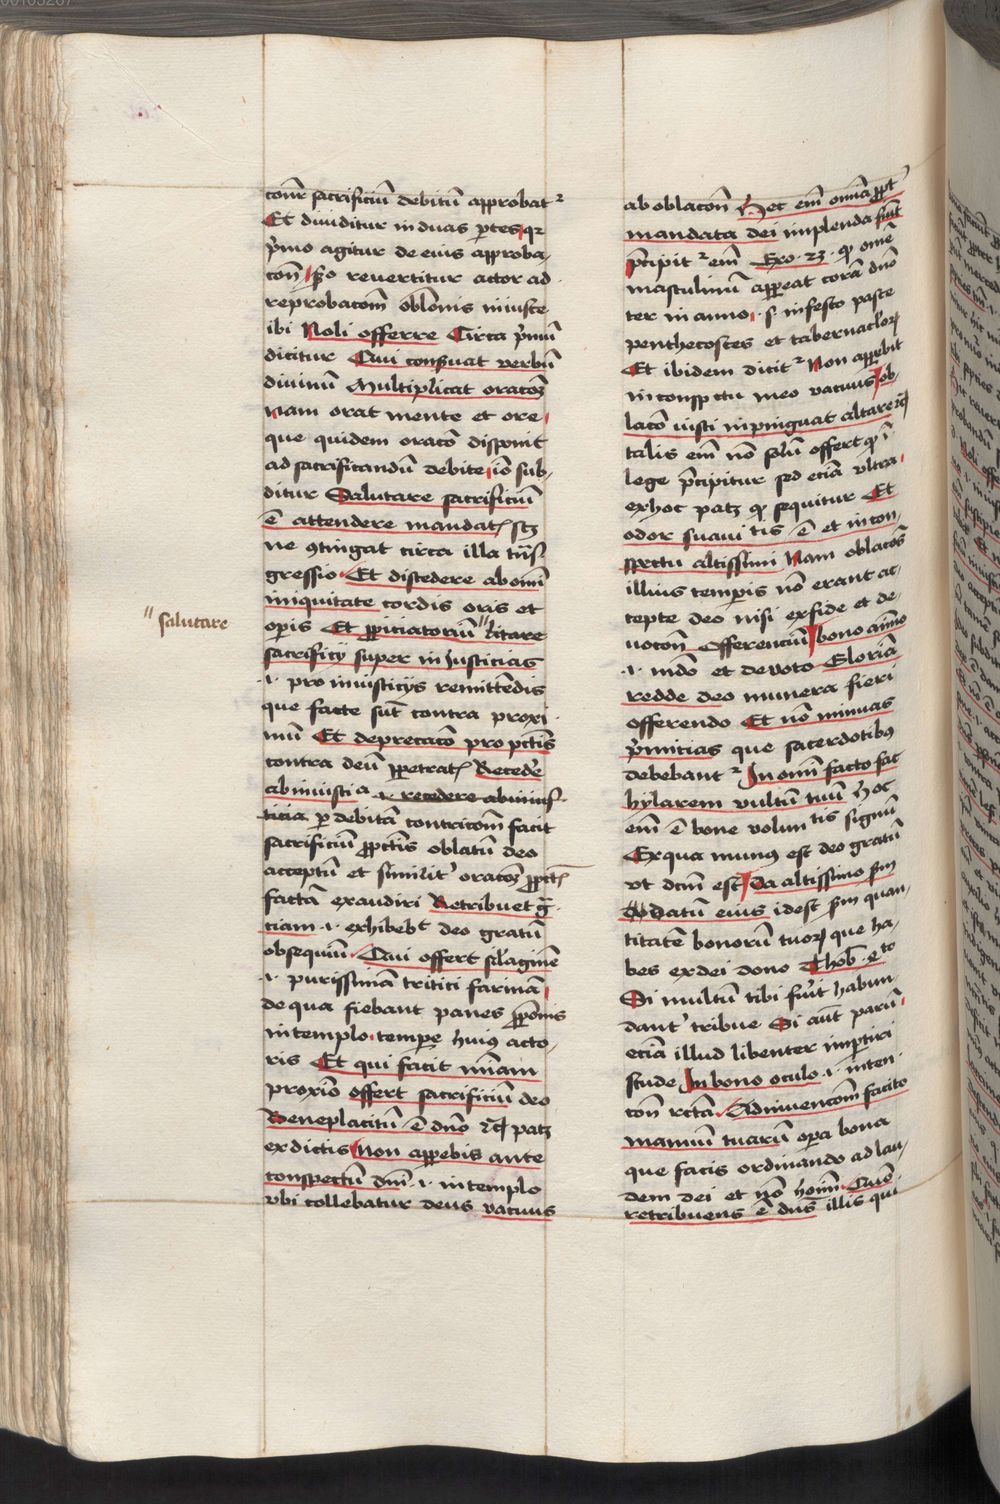 tionē sacrificiū debitū approbat᷑
Et diuiditur in duas ptes qꝛ
pͥmo agitur de eius approba-
tōn 2o reuertitur actor ad
reprobacōm oblōnis iniuste
ibi Noli offerre Circa pͥmū
dicitur Qui consuat verbū
diuinū Multiplicat oratōꝫ
Nam orat mente et ore
que quidem oratō disponit
ad sacrificandū debite iō sub-
ditur Salutare sacrificiū
ē attendere mandatꝭ scꝫ
ne ꝯtingat circa illa tͣns-
gressio Et discedere ab omī
iniquitate cordis oris et
opis Et ꝓpiciatoriū litare
salutare
sacrificij super iniusticias
.i. pro iniusticijs remittēdis
que facte sūt contra proxi
mū Et deprecatō pro pctīs
contra deū ꝑpetratꝭ Recedē
ab iniusticia .i. recedere ab iniust-
ticia ꝑ debitā contricōm facit
sacrificiū ꝓ pctīs oblatū deo
acceptū et similit᷑ oratōꝫ ꝓ pctꝭ
factā exaudiri Retribuet gͣ-
tiam .i. exhibebt deo gratū
obsequiū Qui offert silaginē
.i. purissimā tritici farinā
de qua fiebant panes ꝓpōnis
in templo tempe huiꝰ acto-
ris Et qui facit mīam
proximo offert sacrificiū deo
Beneplacitū ē dn̄o ꝛcꝭ patꝫ
ex dictis Non appebis ante
conspectū dn̄i .i. in templo
vbi collebatur deus vacuus
ab oblacōn Hec em̄ om̄ia ꝓpt
mandata dei implenda fiūt
p̄cipit᷑ em̄ Exo. 23. qꝫ om̄e
masculinū appeat corā dn̄o
ter in anno .s. in festo pasce
penthecostes et tabernaclorꝭ
Et ibidem dicit᷑ Non appebit
in conspectu meo vacuus ob-
lacō iusti inpinguat altare ꝛcꝭ
talis em̄ nō solū offert qꝫ ī
lege p̄cipitur sed eciā vltra
ex hoc patꝫ qꝫ sequitur Et
odor suauitis ē et in con-
spectu altissimi Nam oblacōs
illius tempis nō erant ac-
cepte deo nisi ex fide et de-
uotōn Offerenciū bono aīmo
.i. mūdo et deuoto Gloriā
redde deo munera fieri
offerendo Et nō minuas
pͥmitias que sacerdotibꝰ
debebant᷑ In om̄i facto fac
hylarem vultū tuū hoc
em̄ ē bone voluntis signū
Ex qua munꝰ est deo gratū
vt dcm̄ est Da altissimo sm̄
datū eius idest sm̄ quan-
titatē bonorū tuorꝭ que ha-
bes ex dei dono Thob. 4to
Si multū tibi fuīt habun-
dant᷑ tribue Si aūt parū
eciā illud libenter impertiri
stude In bono oculo .i. inten
tōn rctā Adinuencōm facito
manuū tuarū opa bona
que facis ordinando ad lau-
dem dei et nō hoīm Qm̄
retribuens ē dn̄s illis qui